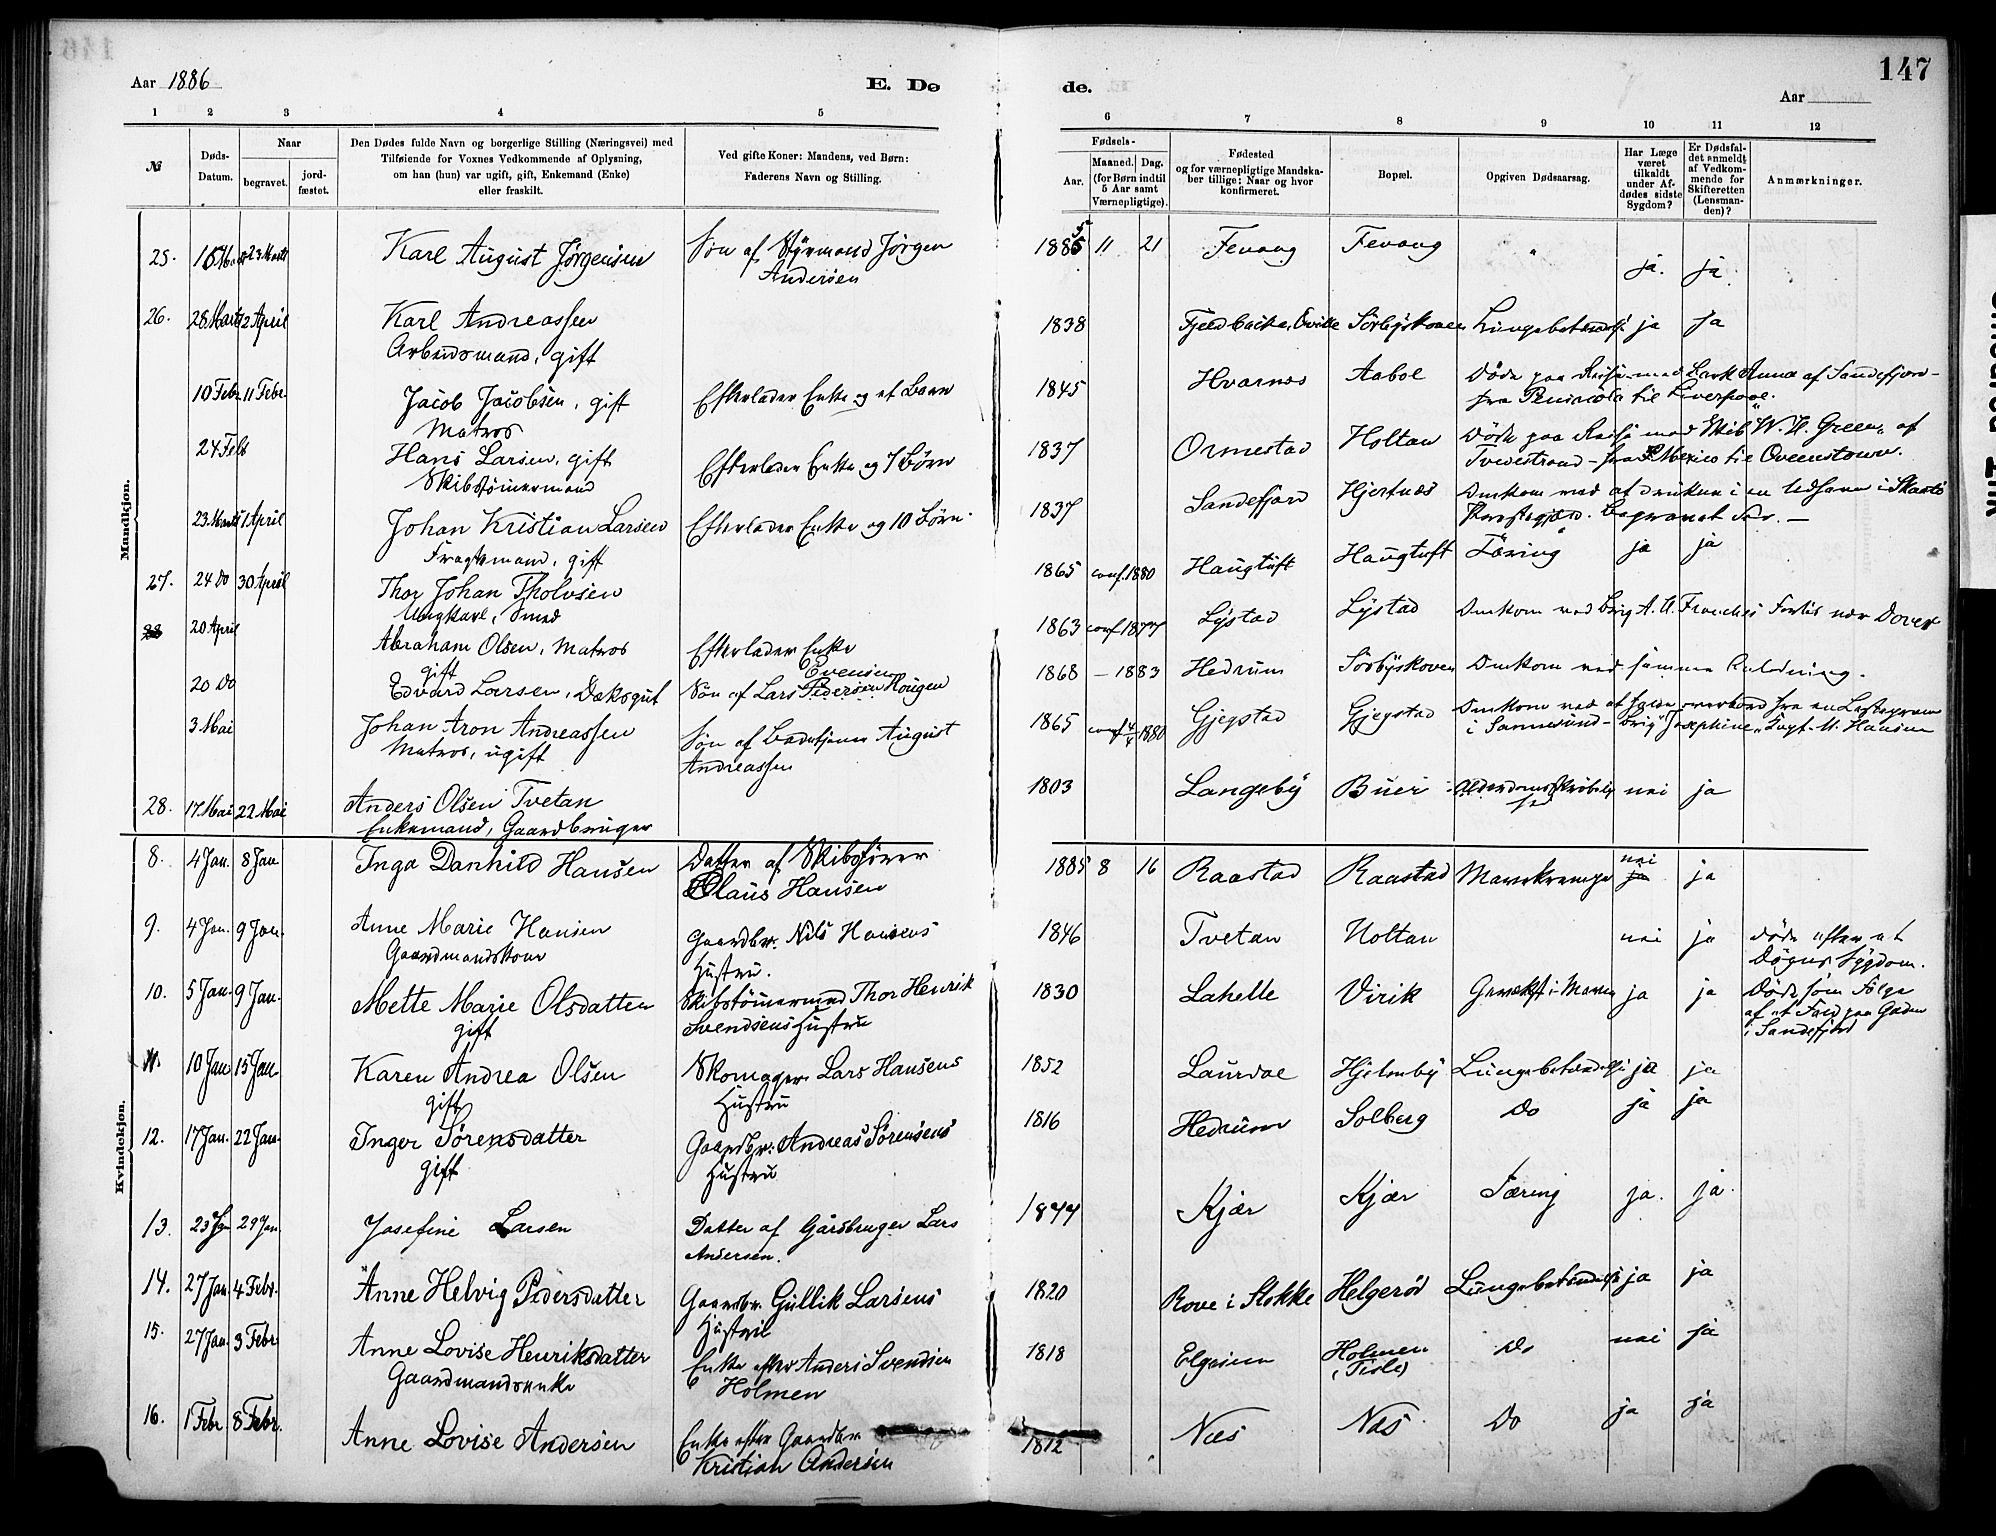 147
Aar 1886
E. Dø
de.
Aar
1 2 3 4 5
6 7 8 9 10 11 12
№
Døds-
Datum.
Naar
begravet.
jord-
fæstet.
Den Dødes fulde Navn og borgerlige Stilling (Næringsvei) med
Tilføiende for Voxnes Vedkommende af Oplysning,
om han (hun) var ugift, gift, Enkemand (Enke)
eller fraskilt.
Ved gifte Koner: Mandens, ved Børn:
Faderens Navn og Stilling.
Fødsels-
Aar.
Maaned. Dag.
(for Børn indtil
5 Aar samt
Værnepligtige).
Fødested
og for værnepligtige Mandska-
ber tillige: Naar og hvor
konfirmeret.
Bopæl.
Opgiven Dødsaarsag.
Har Læge
været
tilkaldt
under Af-
dødes sidste
Sygdom?
Er Dødsfal-
det anmeldt
af Vedkom-
mende for
Skifteretten
(Lensman-
den)?
Anmærkninger.
Mandkjøn.
25. 23 Marts Karl August Jørgensen Søn af Styrmand Jørgen 1885 11 21 Fevang Fevang " ja. ja.
Andersen
26. 28 Marts 2 April Karl Andreassen 1838 Sørbyskoven Lungebetændelse ja ja
Arbeidsmand, gift
10 Febr 11 Febr Jacob Jacobsen, gift Efterlader Enke og et Barn 1845 Hvarnes Aaboe Døde paa Reise med Bark Anna af Sandefjord-
Matros fra Pensacola til Liverpool.
24 Feb Hans Larsen, gift Efterlader Enke og 7 Børn 1837 Ormestad Holtan Døde paa Reise med Skib "W. H. Green" af
Skibstømermand Tvedestrand - fra Mexico til Qveenstown.
23 Marts 1 April Johan Kristian Larsen Efterlader Enke og 10 Børn. 1837 Sandefjord Hjertnæs Omkom ved at drukne i
Fragtemand, gift Præstegjæld. Begravet
27. 24 Do 30 April Thor Johan Tholvsen 1865 conf. 1880 Haugtuft Haugtuft Tæring ja ja
Ungkarl, Smed
28 20 April Abraham Olsen, Matros Efterlader Enke 1863 conf 1877 Lystad Lystad Omkom ved Brig A. H. Forlis nær Dover
gift
20 Do Edvard Larsen, Dæksgut Søn af Lars Pedersen Evensen Hougen 1868 — 1883 Hedrum Sørbyskoven Omkom ved samme Anledning.
3 Mai Johan Aron Andreassen Søn af August 1865 conf 4/4 1880 Gjegstad Gjegstad Omkom ved at falde overbord fra en
Matros, ugift Andreassen i Sannesund - Brig "Josephine" Capt. M. Hansen
28. 17 Mai 22 Mai Anders Olsen Tvetan 1803 Langeby Buer Alderdomsskrøbelig nei ja
Enkemand, Gaardbruger
Kvindekjøn.
8. 4 Jan. 8 Jan Inga Danhild Hansen Datter af Skibsfører 1885 8 16 Raastad Raastad Mavekrampe ja nei ja
Olaus Hansen
9. 4 Jan. 9 Jan. Anne Marie Hansen Gaardbr. Nils Hansens 1846 Tvetan Holtan nei ja Døde efter et
Gaardmandskone Hustru. Døgns Sygdom.
10. 5 Jan. 9 Jan. Mette Marie Olsdatter Skibstømermand Thor Henrik 1830 Lahelle Virik i Maven ja ja Døde som Følge
gift Svendsens Hustru af et Fald paa Gaden
i Sandefjord
11. 10 Jan 15 Jan. Karen Andrea Olsen Skomager Lars Hansens 1852 Laurdal Hjelmby Lungebetændelse ja ja
gift Hustru
12. 17 Jan. 22 Jan. Inger Sørensdatter Gaardbr. Andreas Sørensens 1816 Hedrum Solberg Do ja ja
gift Hustru
13. 23 Jan 29 Jan Josefine Larsen Datter af Gårdbruger Lars 1877 Kjær Kjær Tæring ja. ja.
Andersen.
14. 27 Jan. 4 Febr. Anne Helvig Pedersdatter Gaardbr. Gullik Larsens 1820 Rove i Stokke Helgerød Lungebetændelse ja ja
Hustru
15. 27 Jan. 3 Febr. Anne Lovise Henriksdatter Enke efter Anders Svendsen 1818 Elgesem Holmen Do nei ja
Gaardmandsenke Holmen
16. 1 Febr 8 Febr. Anne Lovise Andersen Enke efter Gaardbr 1812 Næs Næs Do ja ja
Kristian Andersen